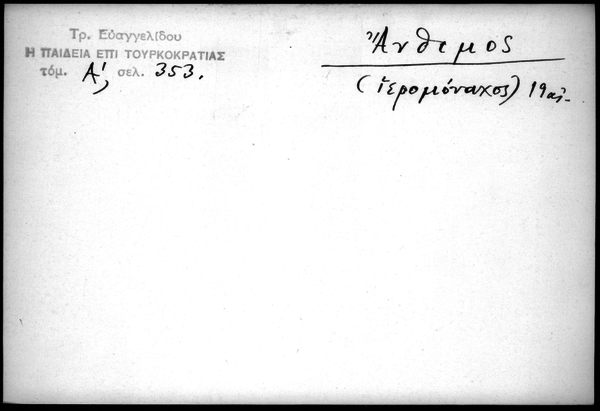 Τρ. Εὐαγγελίδου
Η ΠΑΙΔΕΙΑ ΕΠΙ ΤΟΥΡΚΟΚΡΑΤΙΑΣ
τόμ. Α', σελ. 353.
Ἄνθεμος
(ἱερομόναχος) 19 αἰ.